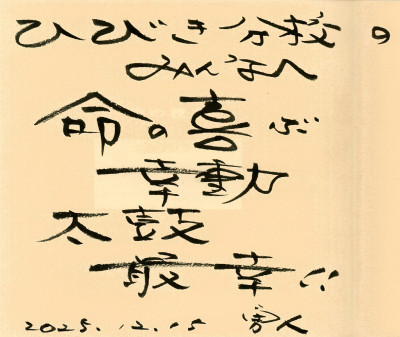 ひびき分校の
みんなへ
命の喜ぶ
幸動
太鼓
最幸!!
2025.12.15